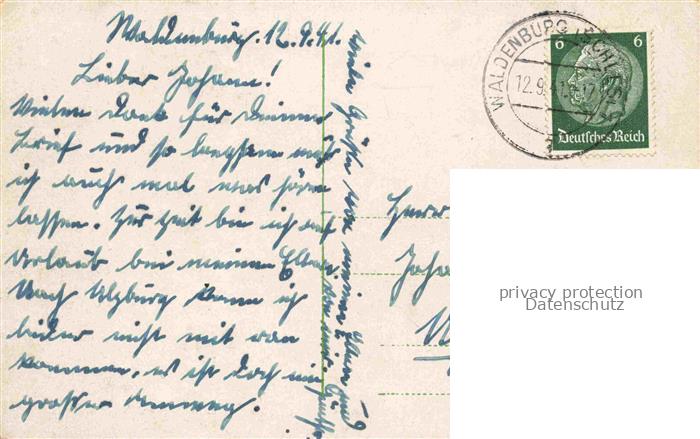 Waldenburg, 12.9.41.
Lieber Johann!
Vielen Dank für Deinen
Brief und so langsam muß
ich auch mal was hören
lassen. Zur Zeit bin ich auf
Urlaub bei meinen Eltern.
Nach Ulzburg kann ich
leider nicht mit ran
kommen, es ist doch ein
grosser Umweg.
viele Grüße von meinen
Herrn
Joha
WALDENBURG (SCHLES)
12.9.41
6 6
Deutsches Reich
privacy protection
Datenschutz